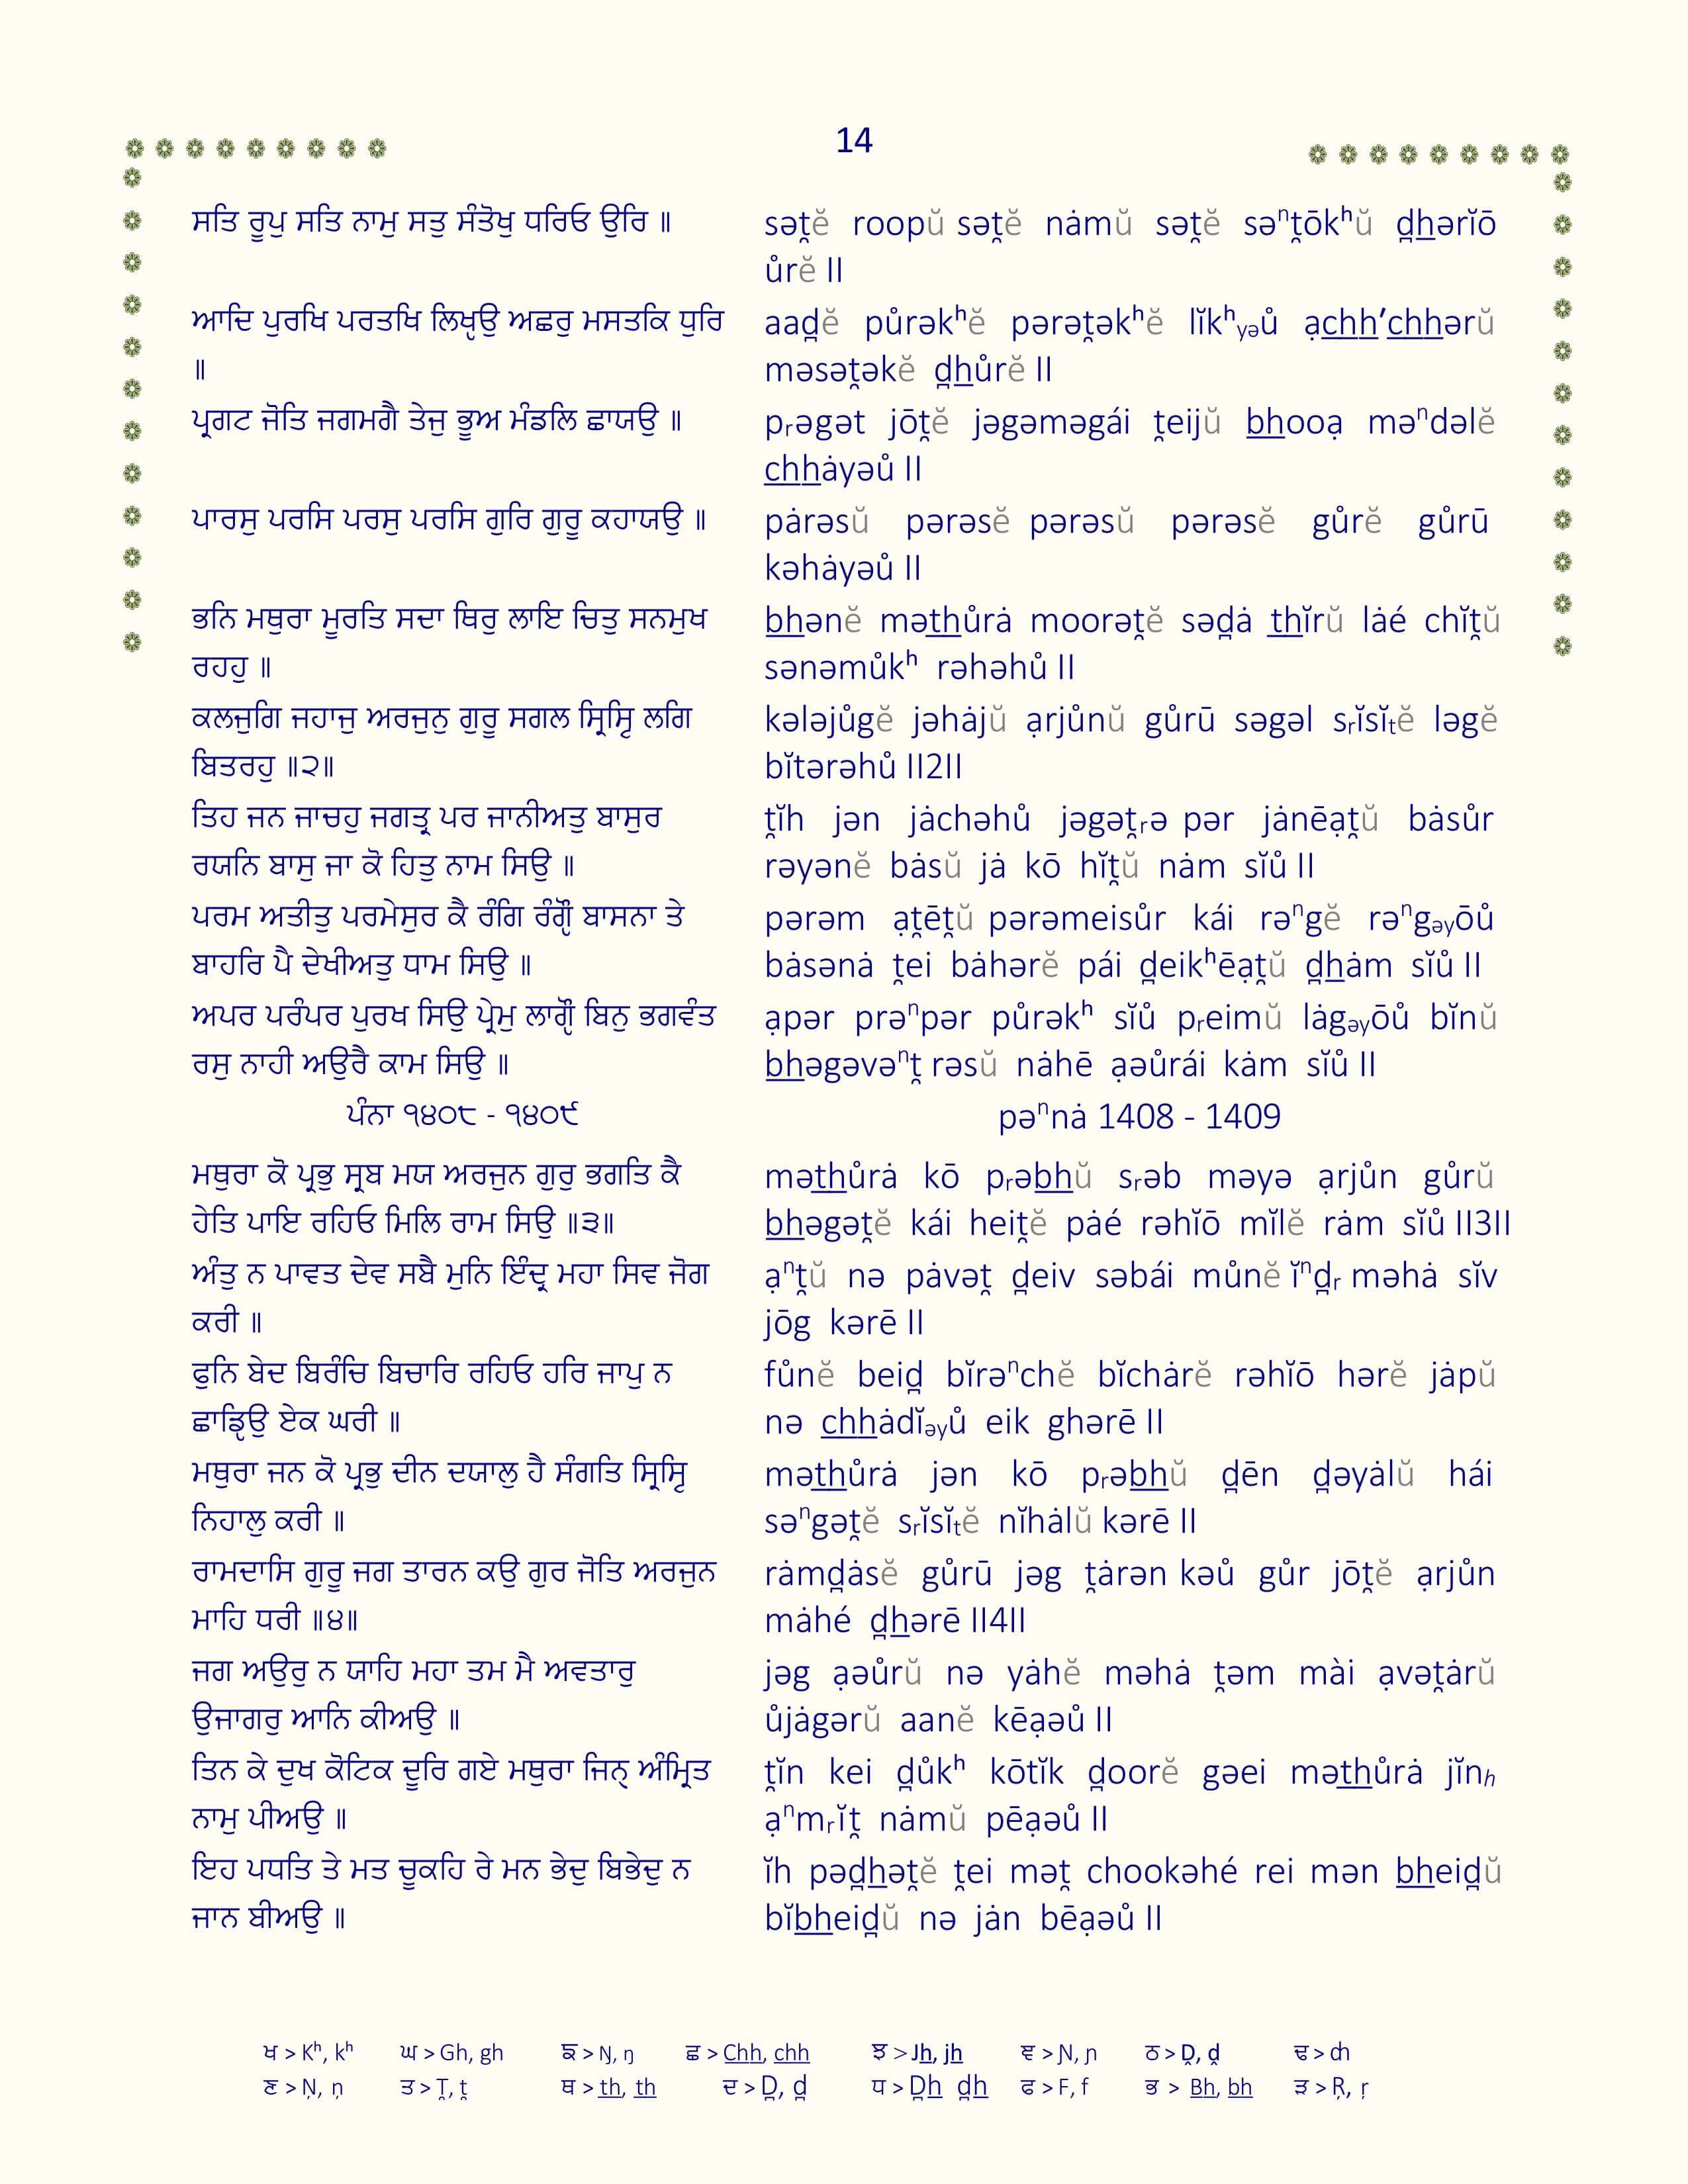 14
ਸਤਿ ਰੂਪੁ ਸਤਿ ਨਾਮੁ ਸਤੁ ਸੰਤੋਖੁ ਧਰਿਓ ਉਰਿ ॥
sət̪ĕ roopŭ sət̪ĕ nȧmŭ sət̪ĕ səⁿt̪ōkʰŭ d̪hərĭō
ůrĕ II
ਆਦਿ ਪੁਰਖਿ ਪਰਤਖਿ ਲਿਖੵਉ ਅਛਰੁ ਮਸਤਕਿ ਧੁਰਿ
॥
aad̪ĕ půrəkʰĕ pərət̪əkʰĕ lĭkʰyəů ạchh’chhərŭ
məsət̪əkĕ d̪hůrĕ II
ਪ੍ਰਗਟ ਜੋਤਿ ਜਗਮਗੈ ਤੇਜੁ ਭੂਅ ਮੰਡਲਿ ਛਾਯਉ ॥
pᵣəgət jōt̪ĕ jəgəməgái t̪eijŭ bhooạ məⁿdəlĕ
chhȧyəů II
ਪਾਰਸੁ ਪਰਸਿ ਪਰਸੁ ਪਰਸਿ ਗੁਰਿ ਗੁਰੂ ਕਹਾਯਉ ॥
pȧrəsŭ pərəsĕ pərəsŭ pərəsĕ gůrĕ gůrū
kəhȧyəů II
ਭਨਿ ਮਥੁਰਾ ਮੂਰਤਿ ਸਦਾ ਥਿਰੁ ਲਾਇ ਚਿਤੁ ਸਨਮੁਖ
ਰਹਹੁ ॥
bhənĕ məthůrȧ moorət̪ĕ səd̪ȧ thĭrŭ lȧé chĭt̪ŭ
sənəmůkʰ rəhəhů II
ਕਲਜੁਗਿ ਜਹਾਜੁ ਅਰਜੁਨੁ ਗੁਰੂ ਸਗਲ ਸ੍ਰਿਸ੍ਟਿ ਲਗਿ
ਬਿਤਰਹੁ ॥੨॥
kələjůgĕ jəhȧjŭ ạrjůnŭ gůrū səgəl sᵣĭsĭₜĕ ləgĕ
bĭtərəhů II2II
ਤਿਹ ਜਨ ਜਾਚਹੁ ਜਗਤ੍ਰ ਪਰ ਜਾਨੀਅਤੁ ਬਾਸੁਰ
ਰਯਨਿ ਬਾਸੁ ਜਾ ਕੋ ਹਿਤੁ ਨਾਮ ਸਿਉ ॥
t̪ĭh jən jȧchəhů jəgət̪ᵣə pər jȧnēạt̪ŭ bȧsůr
rəyənĕ bȧsŭ jȧ kō hĭt̪ŭ nȧm sĭů II
ਪਰਮ ਅਤੀਤੁ ਪਰਮੇਸੁਰ ਕੈ ਰੰਗਿ ਰੰਗੵੌ ਬਾਸਨਾ ਤੇ
ਬਾਹਰਿ ਪੈ ਦੇਖੀਅਤੁ ਧਾਮ ਸਿਉ ॥
pərəm ạt̪ēt̪ŭ pərəmeisůr kái rəⁿgĕ rəⁿgəyōů
bȧsənȧ t̪ei bȧhərĕ pái d̪eikʰēạt̪ŭ d̪hȧm sĭů II
ਅਪਰ ਪਰੰਪਰ ਪੁਰਖ ਸਿਉ ਪ੍ਰੇਮੁ ਲਾਗੵੌ ਬਿਨੁ ਭਗਵੰਤ
ਰਸੁ ਨਾਹੀ ਅਉਰੈ ਕਾਮ ਸਿਉ ॥
ạpər prəⁿpər půrəkʰ sĭů pᵣeimŭ lȧgəyōů bĭnŭ
bhəgəvəⁿt̪ rəsŭ nȧhē ạəůrái kȧm sĭů II
ਪੰਨਾ ੧੪੦੮ - ੧੪੦੯
pəⁿnȧ 1408 - 1409
ਮਥੁਰਾ ਕੋ ਪ੍ਰਭੁ ਸ੍ਰਬ ਮਯ ਅਰਜੁਨ ਗੁਰੁ ਭਗਤਿ ਕੈ
ਹੇਤਿ ਪਾਇ ਰਹਿਓ ਮਿਲਿ ਰਾਮ ਸਿਉ ॥੩॥
məthůrȧ kō pᵣəbhŭ sᵣəb məyə ạrjůn gůrŭ
bhəgət̪ĕ kái heit̪ĕ pȧé rəhĭō mĭlĕ rȧm sĭů II3II
ਅੰਤੁ ਨ ਪਾਵਤ ਦੇਵ ਸਬੈ ਮੁਨਿ ਇੰਦ੍ਰ ਮਹਾ ਸਿਵ ਜੋਗ
ਕਰੀ ॥
ạⁿt̪ŭ nə pȧvət̪ d̪eiv səbái můnĕ ĭⁿd̪ᵣ məhȧ sĭv
jōg kərē II
ਫੁਨਿ ਬੇਦ ਬਿਰੰਚਿ ਬਿਚਾਰਿ ਰਹਿਓ ਹਰਿ ਜਾਪੁ ਨ
ਛਾਡਿੵਉ ਏਕ ਘਰੀ ॥
fůnĕ beid̪ bĭrəⁿchĕ bĭchȧrĕ rəhĭō hərĕ jȧpŭ
nə chhȧdĭəyů eik ghərē II
ਮਥੁਰਾ ਜਨ ਕੋ ਪ੍ਰਭੁ ਦੀਨ ਦਯਾਲੁ ਹੈ ਸੰਗਤਿ ਸ੍ਰਿਸ੍ਟਿ
ਨਿਹਾਲੁ ਕਰੀ ॥
məthůrȧ jən kō pᵣəbhŭ d̪ēn d̪əyȧlŭ hái
səⁿgət̪ĕ sᵣĭsĭₜĕ nĭhȧlŭ kərē II
ਰਾਮਦਾਸਿ ਗੁਰੂ ਜਗ ਤਾਰਨ ਕਉ ਗੁਰ ਜੋਤਿ ਅਰਜੁਨ
ਮਾਹਿ ਧਰੀ ॥੪॥
rȧmd̪ȧsĕ gůrū jəg t̪ȧrən kəů gůr jōt̪ĕ ạrjůn
mȧhé d̪hərē II4II
ਜਗ ਅਉਰੁ ਨ ਯਾਹਿ ਮਹਾ ਤਮ ਮੈ ਅਵਤਾਰੁ
ਉਜਾਗਰੁ ਆਨਿ ਕੀਅਉ ॥
jəg ạəůrŭ nə yȧhĕ məhȧ t̪əm mài ạvət̪ȧrŭ
ůjȧgərŭ aanĕ kēạəů II
ਤਿਨ ਕੇ ਦੁਖ ਕੋਟਿਕ ਦੂਰਿ ਗਏ ਮਥੁਰਾ ਜਿਨੑ ਅੰਮ੍ਰਿਤ
ਨਾਮੁ ਪੀਅਉ ॥
t̪ĭn kei d̪ůkʰ kōtĭk d̪oorĕ gəei məthůrȧ jĭnₕ
ạⁿmᵣĭt̪ nȧmŭ pēạəů II
ਇਹ ਪਧਤਿ ਤੇ ਮਤ ਚੂਕਹਿ ਰੇ ਮਨ ਭੇਦੁ ਬਿਭੇਦੁ ਨ
ਜਾਨ ਬੀਅਉ ॥
ĭh pəd̪hət̪ĕ t̪ei mət̪ chookəhé rei mən bheid̪ŭ
bĭbheid̪ŭ nə jȧn bēạəů II
ਖ > Kʰ, kʰ ਘ > Gh, gh ਙ > Ŋ, ŋ ਛ > Chh, chh ਝ > Jh, jh ਞ > Ɲ, ɲ ਠ > D̯, d̯ ਢ > ȸh
ਣ > Ṇ, ṇ ਤ > T̪, t̪ ਥ > th, th ਦ > D̪, d̪ ਧ > D̪h d̪h ਫ > F, f ਭ > Bh, bh ੜ > Ŗ, ŗ